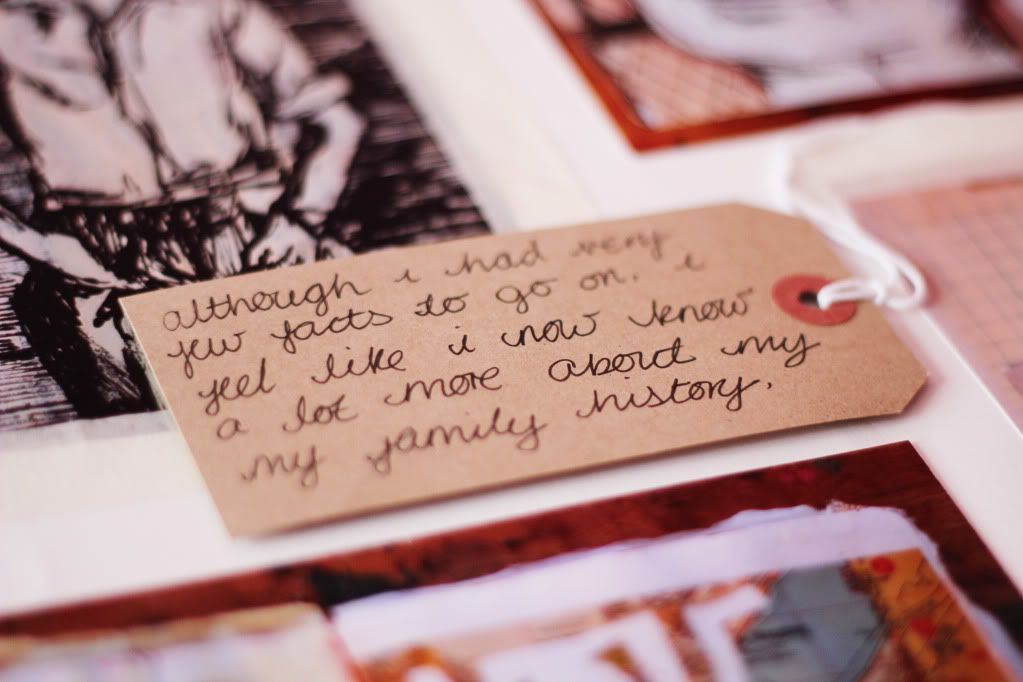 although i had very
few facts to go on. i
feel like i now know
a lot more about my
my family history.